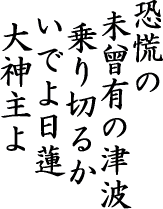 恐慌の
未曾有の津波
乗り切るか
いでよ日蓮
大神主よ